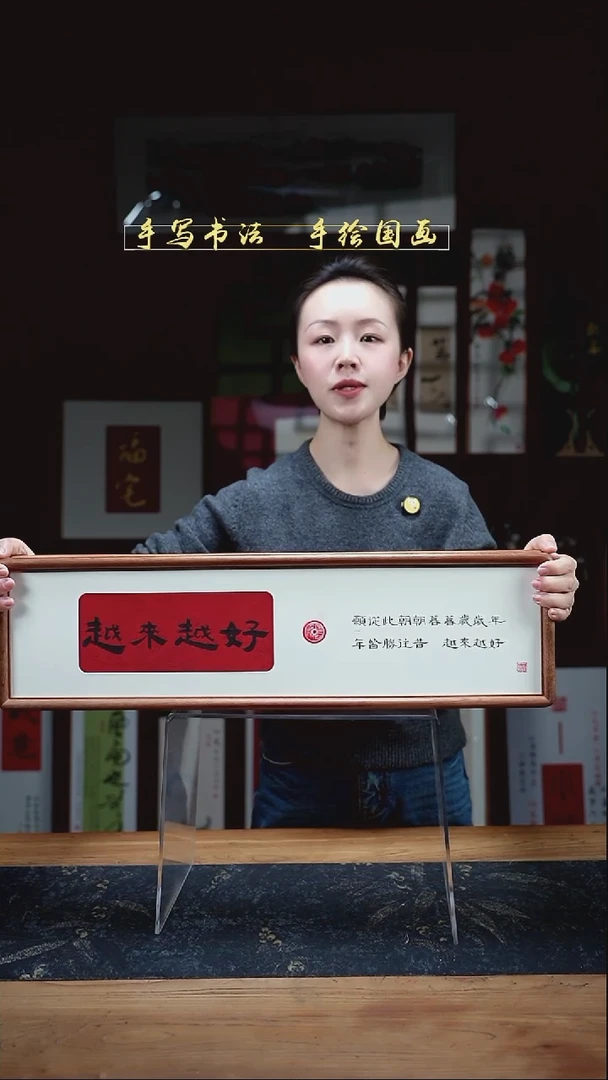 手写书法　手绘国画
福宅
越来越好
願從此朝朝暮暮歲歲年
年皆勝往昔　越來越好